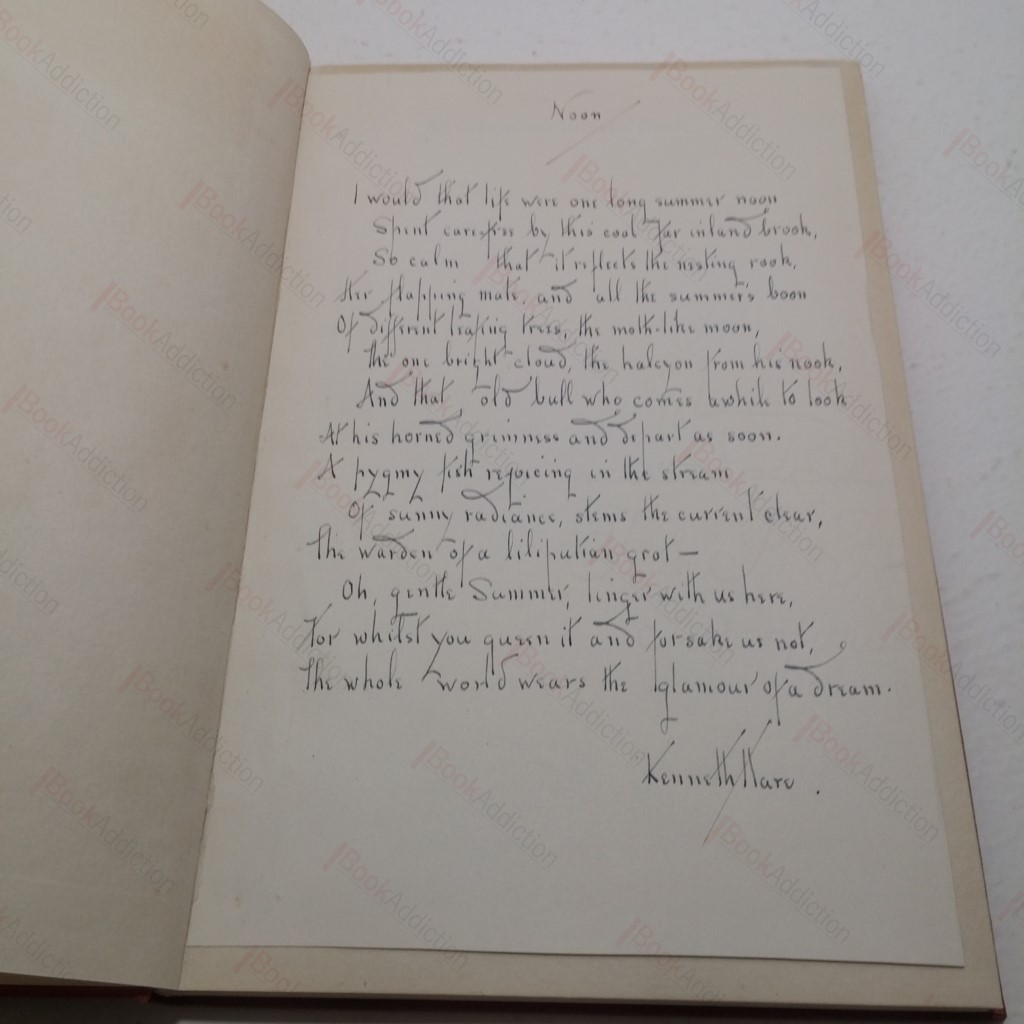 Noon
I would that life were one long summer noon
Spent care-free by this cool far inland brook,
So calm that it reflects the nesting rook,
Her flapping mate and all the summer's boon
Of different leafing trees, the moth-like moon,
The one bright cloud, the halcyon from his nook,
And that old bull who comes awhile to look
At his horned grimness and depart as soon.
A pygmy fish rejoicing in the stream
Of sunny radiance, stems the current clear,
The warden of a liliputian grot —
Oh, gentle Summer, linger with us here,
For whilst you queen it and forsake us not,
The whole world wears the glamour of a dream.
Kenneth Hare.
BookAddiction